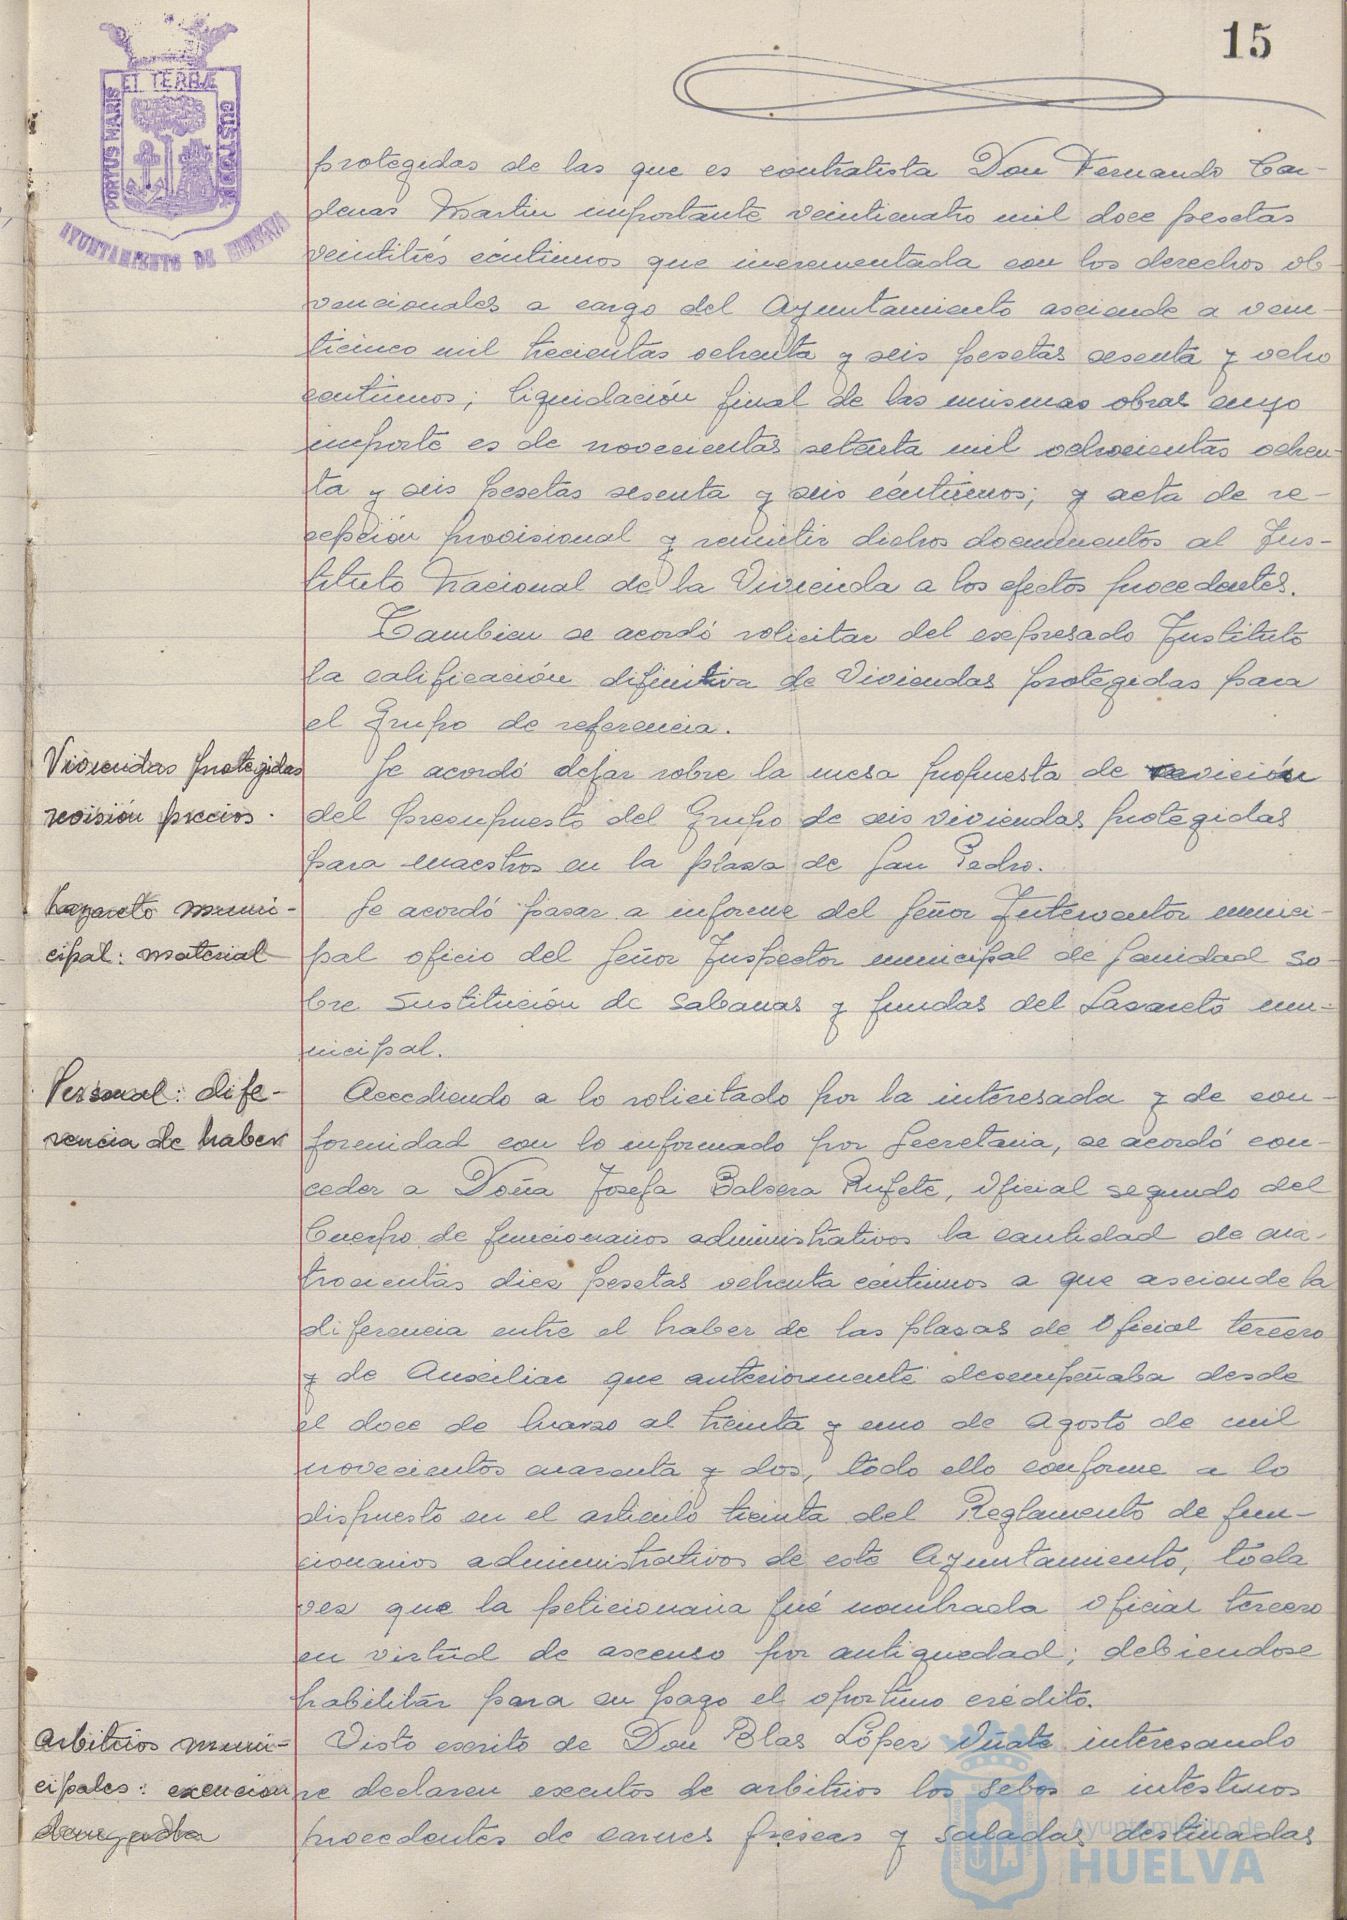 15
PORTUS MARIS
ET TERRÆ
CUSTODIA
AYUNTAMIENTO DE HUELVA
protegidas de las que es contratista Don Fernando Car-
denas Martin importante veinticuatro mil doce pesetas
veintitrés céntimos que incrementada con los derechos ob-
vencionales a cargo del Ayuntamiento asciende a vein-
ticinco mil trecientas ochenta y seis pesetas sesenta y ocho
centimos; liquidación final de las mismas obras cuyo
importe es de novecientas setenta mil ochocientas ochen-
ta y seis pesetas sesenta y seis céntimos; y acta de re-
cepción provisional y remitir dichos documentos al Ins-
tituto Nacional de la Vivienda a los efectos procedentes.
Tambien se acordó solicitar del expresado Instituto
la calificación difinitiva de Viviendas protegidas para
el Grupo de referencia.
Viviendas protegidas
revisión precios.
Se acordó dejar sobre la mesa propuesta de revición
del presupuesto del Grupo de seis viviendas protegidas
para maestros en la plaza de San Pedro.
Lazareto muni-
cipal: material
Se acordó pasar a informe del Señor Interventor munici-
pal oficio del Señor Inspector municipal de Sanidad so-
bre sustitución de sabanas y fundas del Lazareto mu-
nicipal.
Personal: dife-
rencia de haber
Accediendo a lo solicitado por la interesada y de con-
formidad con lo informado por Secretaria, se acordó con-
ceder a Doña Josefa Balsera Rufete, Oficial segundo del
Cuerpo de funcionarios administrativos la cantidad de cua-
trocientas diez pesetas ochenta céntimos a que asciende la
diferencia entre el haber de las plazas de Oficial tercero
y de Auxiliar que anteriormente desempeñaba desde
el doce de Marzo al treinta y uno de Agosto de mil
novecientos cuarenta y dos, todo ello conforme a lo
dispuesto en el articulo treinta del Reglamento de fun-
cionarios administrativos de este Ayuntamiento, toda
vez que la peticionaria fué nombrada Oficial tercero
en virtud de ascenso por antiguedad; debiendose
habilitar para su pago el oportuno crédito.
Arbitrios muni-
cipales: exencion
denegada
Visto escrito de Don Blas López Oñate interesando
se declaren exentos de arbitrios los sebos e intestinos
procedentes de carnes frescas y saladas destinadas
Ayuntamiento de
HUELVA